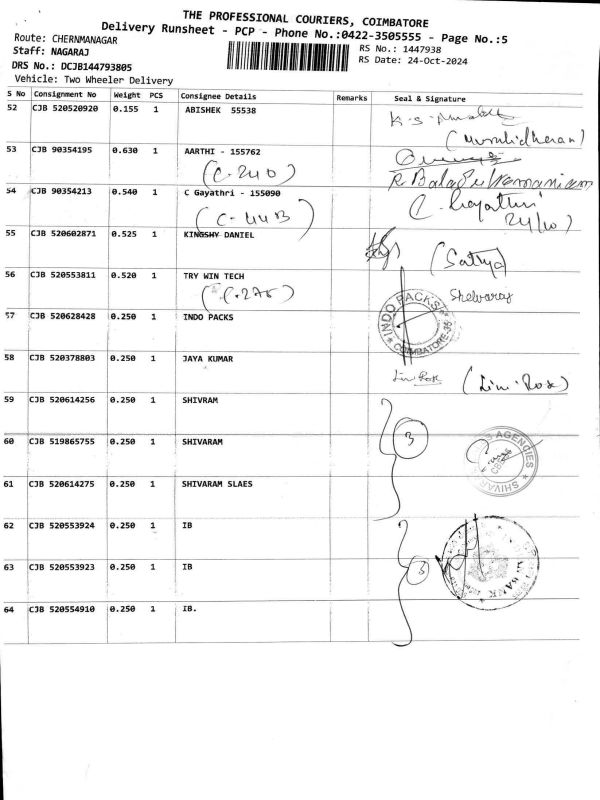 THE PROFESSIONAL COURIERS, COIMBATORE
Delivery Runsheet - PCP - Phone No.:0422-3505555 - Page No.:5
Route: CHERNMANAGAR
RS No.: 1447938
Staff: NAGARAJ
RS Date: 24-Oct-2024
DRS No.: DCJB144793805
Vehicle: Two Wheeler Delivery
S No Consignment No Weight PCS Consignee Details Remarks Seal & Signature
52 CJB 520520920 0.155 1 ABISHEK 55538
(Murulidharan)
53 CJB 90354195 0.630 1 AARTHI - 155762
(C-240)
R. Balasubramaniam
54 CJB 90354213 0.540 1 C Gayathri - 155090
(C-44B)
C. Gayathri
24/10
55 CJB 520602871 0.525 1 KINGSHY DANIEL
(Sathya)
56 CJB 520553811 0.520 1 TRY WIN TECH
(C.275)
Shelvaraj
57 CJB 520628428 0.250 1 INDO PACKS
INDO PACKS * COIMBATORE-35 *
58 CJB 520378803 0.250 1 JAYA KUMAR
Lini Rose (Lini-Rose)
59 CJB 520614256 0.250 1 SHIVRAM
3
60 CJB 519865755 0.250 1 SHIVARAM
AGENCIES
SHIVAR
61 CJB 520614275 0.250 1 SHIVARAM SLAES
62 CJB 520553924 0.250 1 IB
63 CJB 520553923 0.250 1 IB
3
BANK
64 CJB 520554910 0.250 1 IB.